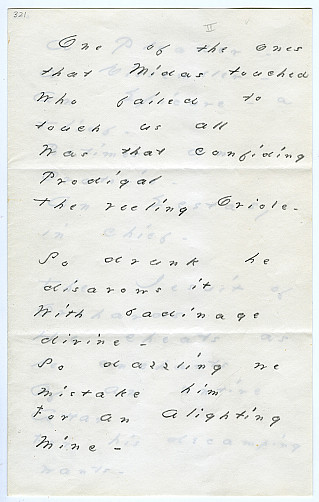 321.
II
One of the ones
that Midas touched
Who failed to
touch us all
Was that confiding
Prodigal
The reeling Oriole -
So drunk he
disavows it
With badinage
divine -
So dazzling we
mistake him
For an alighting
Mine -